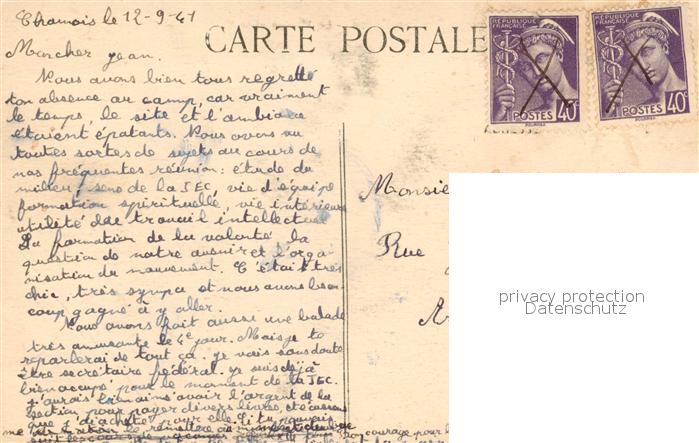 Chamois le 12-9-41
CARTE POSTALE
Mon cher Jean.
RÉPUBLIQUE FRANÇAISE
POSTES 40c
RÉPUBLIQUE FRANÇAISE
POSTES 40c
Nous avons bien tous regretté
ton absence au camp, car vraiment
le temps, le site et l'ambiance
étaient épatants. Nous avons vu
toutes sortes de sujets au cours de
nos fréquentes réunion: étude du
milieu, sens de la JEC, vie d'équipe
formation spirituelle, vie intérieure
utilité du travail intellectuel
La formation de la volonté la
question de notre avenir et l'orga-
nisation du mouvement. C'était très
chic, très sympa et nous avons beau-
coup gagné à y aller.
Nous avons fait aussi une balade
très amusante le 4e jour. Mais je te
reparlerai de tout ça. Je vais sans doute
être secrétaire fédéral. Je suis déjà
bien occupé pour le moment de la JEC.
J'aurais bien aimé avoir l'argent de la
section pour payer divers
que j'achète pour elle. Si tu pouvais
me le remettre
courage pour
Monsie
Rue
privacy protection
Datenschutz